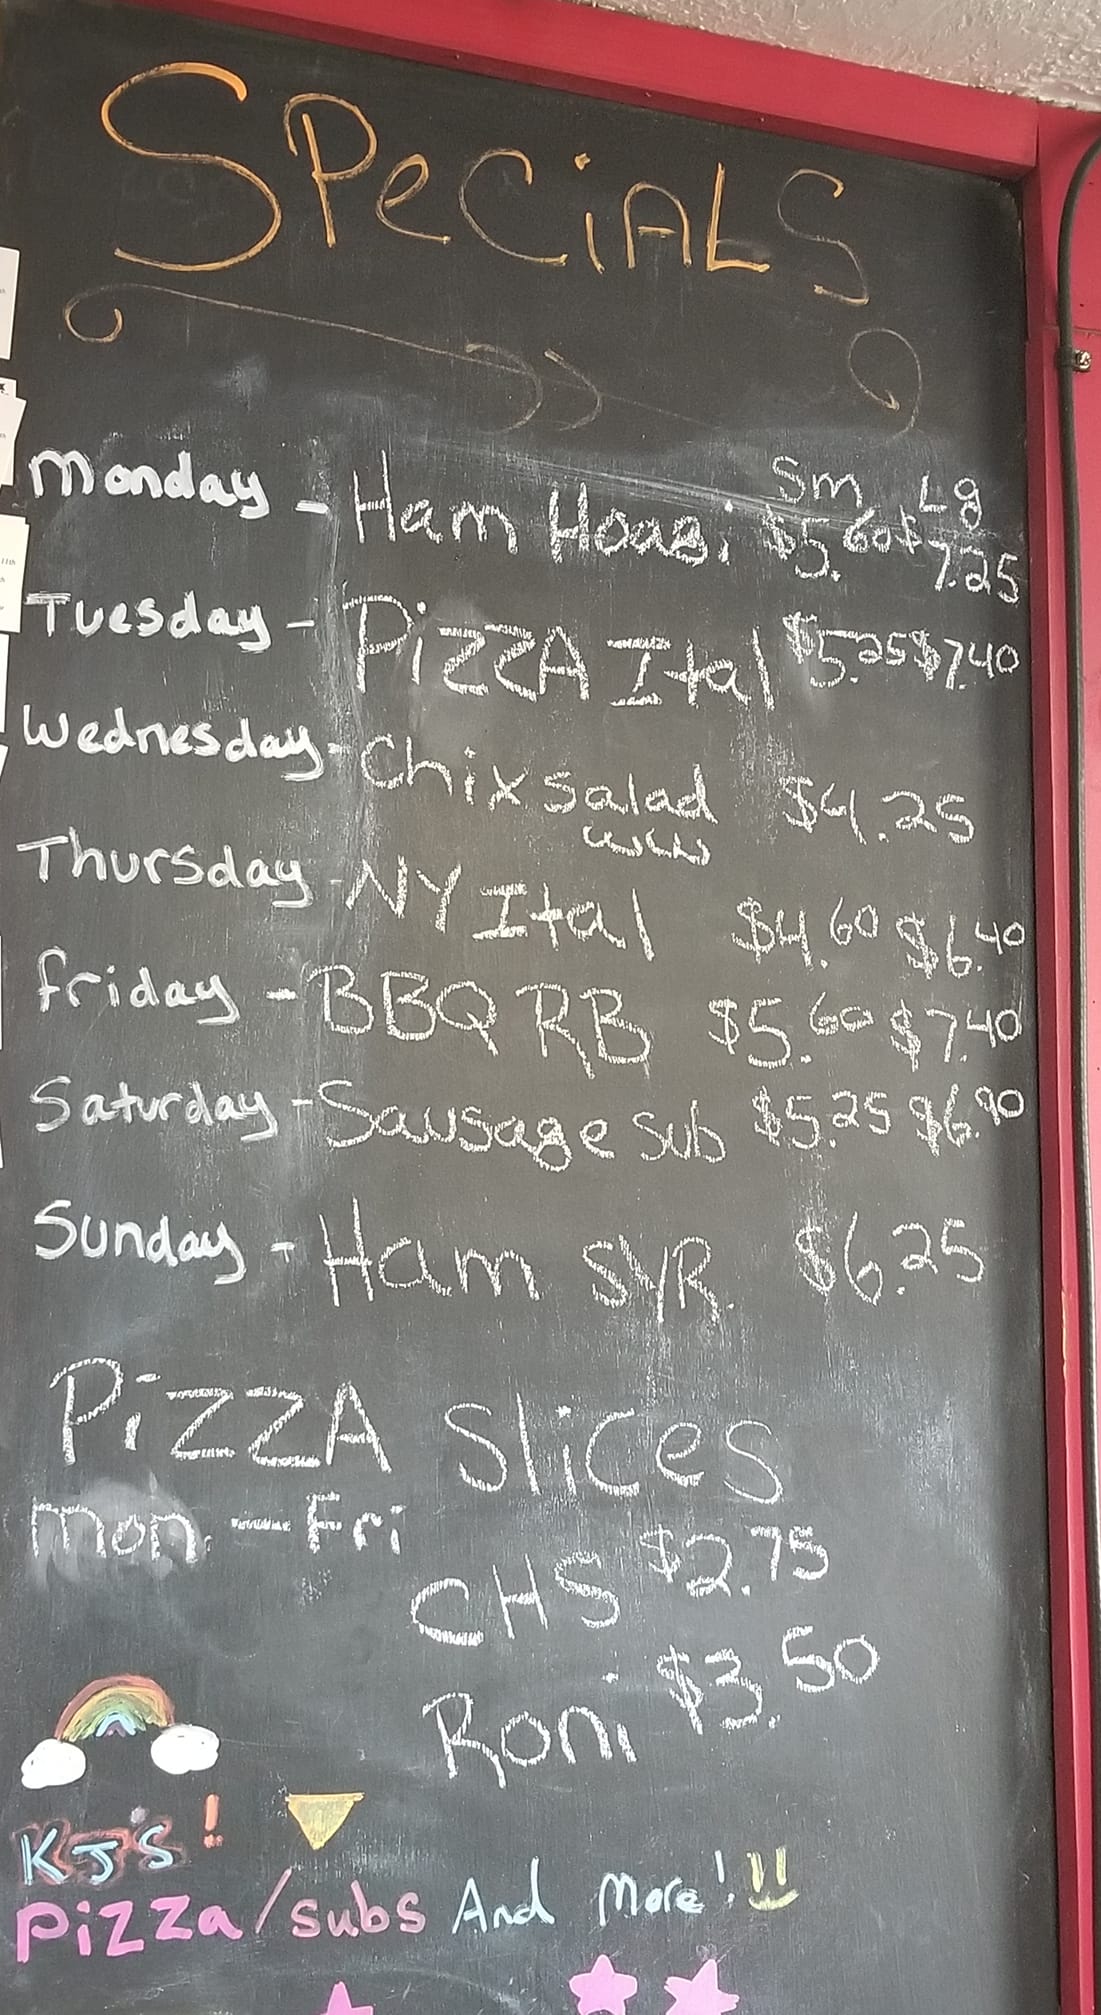 SPeCiALS
Sm Lg
Monday - Ham Hoagi $5.60 $7.25
Tuesday - PiZZA Ital $5.25 $7.40
Wednesday - Chix salad $4.25
Thursday - NY Ital $4.60 $6.40
friday - BBQ RB $5.60 $7.40
Saturday - Sausage sub $5.25 $6.90
Sunday - Ham SYR. $6.25
PiZZA Slices
Mon. - Fri
CHS $2.75
Roni $3.50
KJ's!
PiZZa/subs And More!